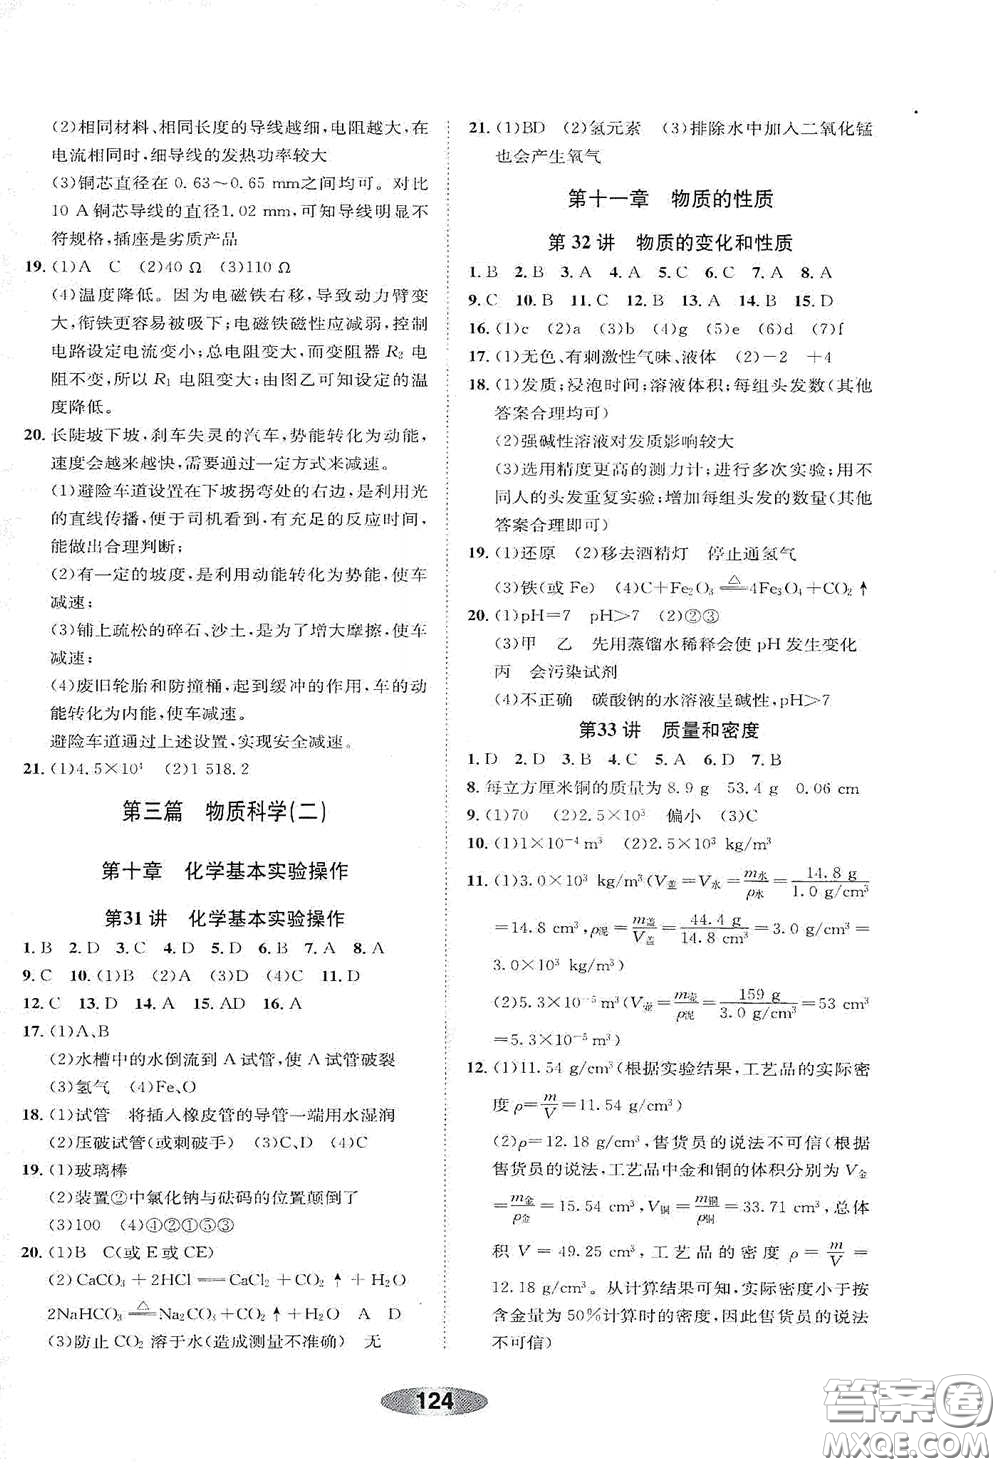 (2)相同材料、相同长度的导线越细,电阻越大,在
电流相同时,细导线的发热功率较大
(3)铜芯直径在 0.63~0.65 mm之间均可。对比
10 A铜芯导线的直径1.02 mm,可知导线明显不
符规格,插座是劣质产品
19. (1)A C (2)40 Ω (3)110 Ω
(4)温度降低。因为电磁铁右移,导致动力臂变
大,衔铁更容易被吸下;电磁铁磁性应减弱,控制
电路设定电流变小;总电阻变大,而变阻器 R₂ 电
阻不变,所以 R₁ 电阻变大;由图乙可知设定的温
度降低。
20. 长陡坡下坡,刹车失灵的汽车,势能转化为动能,
速度会越来越快,需要通过一定方式来减速。
(1)避险车道设置在下坡拐弯处的右边,是利用光
的直线传播,便于司机看到,有充足的反应时间,
能做出合理判断;
(2)有一定的坡度,是利用动能转化为势能,使车
减速;
(3)铺上疏松的碎石、沙土,是为了增大摩擦,使车
减速;
(4)废旧轮胎和防撞桶,起到缓冲的作用,车的动
能转化为内能,使车减速。
避险车道通过上述设置,实现安全减速。
21. (1)4.5×10⁴ (2)1 518.2
第三篇 物质科学(二)
第十章 化学基本实验操作
第31讲 化学基本实验操作
1. B 2. D 3. C 4. D 5. D 6. B 7. A 8. A
9. C 10. (1)B (2)A (3)D (4)C 11. D
12. C 13. D 14. A 15. AD 16. A
17. (1)A、B
(2)水槽中的水倒流到 A 试管,使 A 试管破裂
(3)氢气 (4)Fe、O
18. (1)试管 将插入橡皮管的导管一端用水湿润
(2)压破试管(或刺破手) (3)C、D (4)C
19. (1)玻璃棒
(2)装置②中氯化钠与砝码的位置颠倒了
(3)100 (4)④②①⑤③
20. (1)B C(或 E 或 CE)
(2) CaCO₃ + 2HCl == CaCl₂ + CO₂ ↑ + H₂O
2NaHCO₃ =△= Na₂CO₃ + CO₂ ↑ + H₂O A D
(3)防止 CO₂ 溶于水(造成测量不准确) 无
21. (1)BD (2)氢元素 (3)排除水中加入二氧化锰
也会产生氧气
第十一章 物质的性质
第 32 讲 物质的变化和性质
1. B 2. B 3. A 4. A 5. C 6. C 7. A 8. A
9. C 10. B 11. C 12. B 13. A 14. B 15. D
16. (1)c (2)a (3)b (4)g (5)e (6)d (7)f
17. (1)无色、有刺激性气味、液体 (2)−2 +4
18. (1)发质;浸泡时间;溶液体积;每组头发数(其他
答案合理均可)
(2)强碱性溶液对发质影响较大
(3)选用精度更高的测力计;进行多次实验;用不
同人的头发重复实验;增加每组头发的数量(其他
答案合理即可)
19. (1)还原 (2)移去酒精灯 停止通氢气
(3)铁(或 Fe) (4)C+Fe₂O₃ =△= 4Fe₃O₄+CO₂ ↑
20. (1)pH=7 pH>7 (2)②③
(3)甲 乙 先用蒸馏水稀释会使 pH 发生变化
丙 会污染试剂
(4)不正确 碳酸钠的水溶液呈碱性,pH>7
第33讲 质量和密度
1. D 2. D 3. B 4. C 5. A 6. D 7. B
8. 每立方厘米铜的质量为 8.9 g 53.4 g 0.06 cm
9. (1)70 (2)2.5×10³ 偏小 (3)C
10. (1)1×10⁻⁴ m³ (2)2.5×10³ kg/m³
11. (1)3.0×10³ kg/m³(V盖=V水=m水/ρ水=14.8 g/1.0 g/cm³
=14.8 cm³,ρ泥=m盖/V盖=44.4 g/14.8 cm³=3.0 g/cm³=
3.0×10³ kg/m³)
(2)5.3×10⁻⁵ m³(V壶=m壶/ρ泥=159 g/3.0 g/cm³=53 cm³
=5.3×10⁻⁵ m³)
12. (1)11.54 g/cm³(根据实验结果,工艺品的实际密
度 ρ=m/V=11.54 g/cm³)
(2)ρ=12.18 g/cm³,售货员的说法不可信(根据
售货员的说法,工艺品中金和铜的体积分别为 V金
=m金/ρ金=15.54 cm³,V铜=m铜/ρ铜=33.71 cm³,总体
积 V=49.25 cm³,工艺品的密度 ρ=m/V=
12.18 g/cm³。从计算结果可知,实际密度小于按
含金量为 50%计算时的密度,因此售货员的说法
不可信)
124
答案圈
MXQE.COM